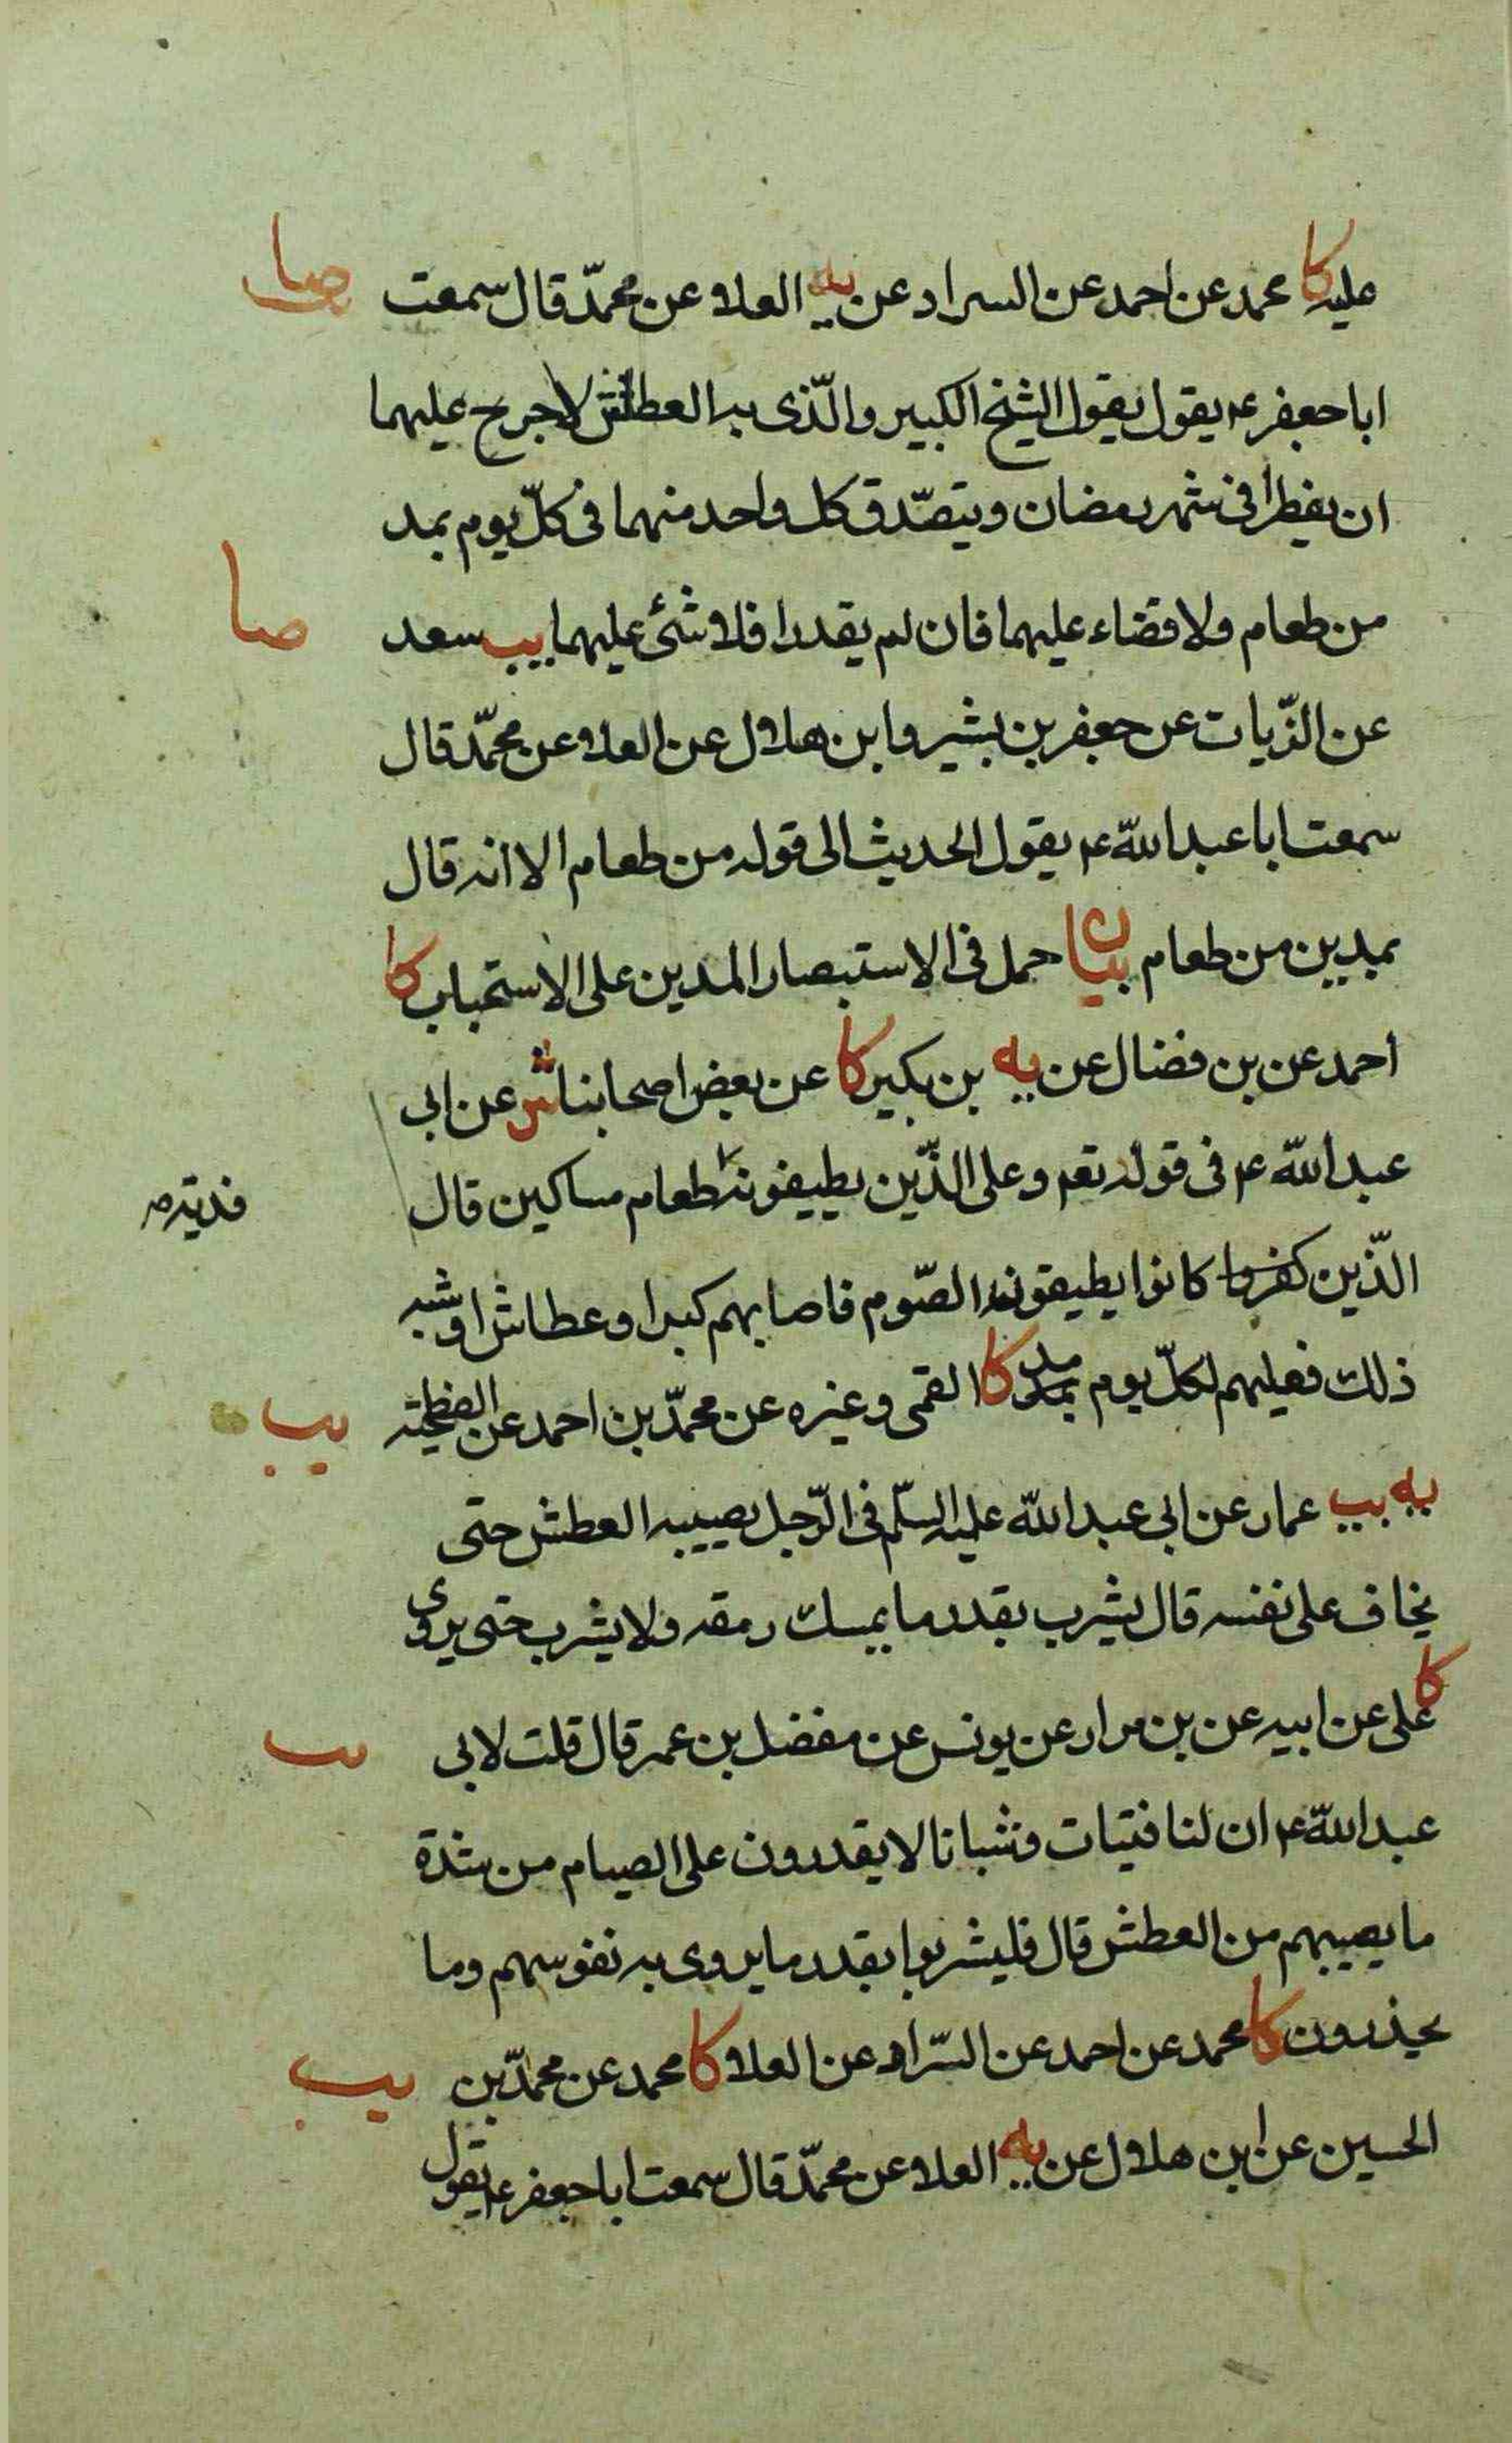 عليه كا محمد عن احمد عن السراد عن يه العلاء عن محمّد قال سمعت
صا
ابا جعفر ع يقول يقول الشيخ الكبير والّذى به العطاش لا جرح عليهما
ان يفطرا فى شهر رمضان ويتصّدق كل واحد منهما فى كلّ يوم بمد
من طعام ولا قضاء عليهما فان لم يقدرا فلا شئ عليهما يب سعد
صا
عن الزّيات عن جعفر بن بشير وابن هلال عن العلاء عن محمّد قال
سمعت ابا عبد اللّه ع يقول الحديث الى قوله من طعام الا انه قال
بمدين من طعام بيان حمل فى الاستبصار المدين على الاستحباب كا
احمد عن بن فضال عن يه بن بكير كا عن بعض اصحابنا ش عن ابى
عبد اللّه ع فى قوله تع وعلى الّذين يطيقونه طعام مساكين قال
فدية صه
الّذين كفروا كانوا يطيقونه الصّوم فاصابهم كبرا وعطاش او شبه
ذلك فعليهم لكلّ يوم بمد مد كا القمى وغيره عن محمّد بن احمد عن الفطحية
يب
يه يب عمار عن ابى عبد اللّه عليه السّلم فى الرّجل يصيبه العطش حتى
يخاف على نفسه قال يشرب بقدر ما يمسك رمقه ولا يشرب حتى يروى
كا على عن ابيه عن بن مرار عن يونس عن مفضل بن عمر قال قلت لابى
يب
عبد اللّه ع ان لنا فتيات وشبانا لا يقدرون على الصيام من شدة
ما يصيبهم من العطش قال فليشربوا بقدر ما يروى به نفوسهم وما
يحذرون كا محمد عن احمد عن السّراد عن العلاء كا محمد عن محمّد بن
يب
الحسين عن ابن هلال عن يه العلاء عن محمّد قال سمعت ابا جعفر ع يقول